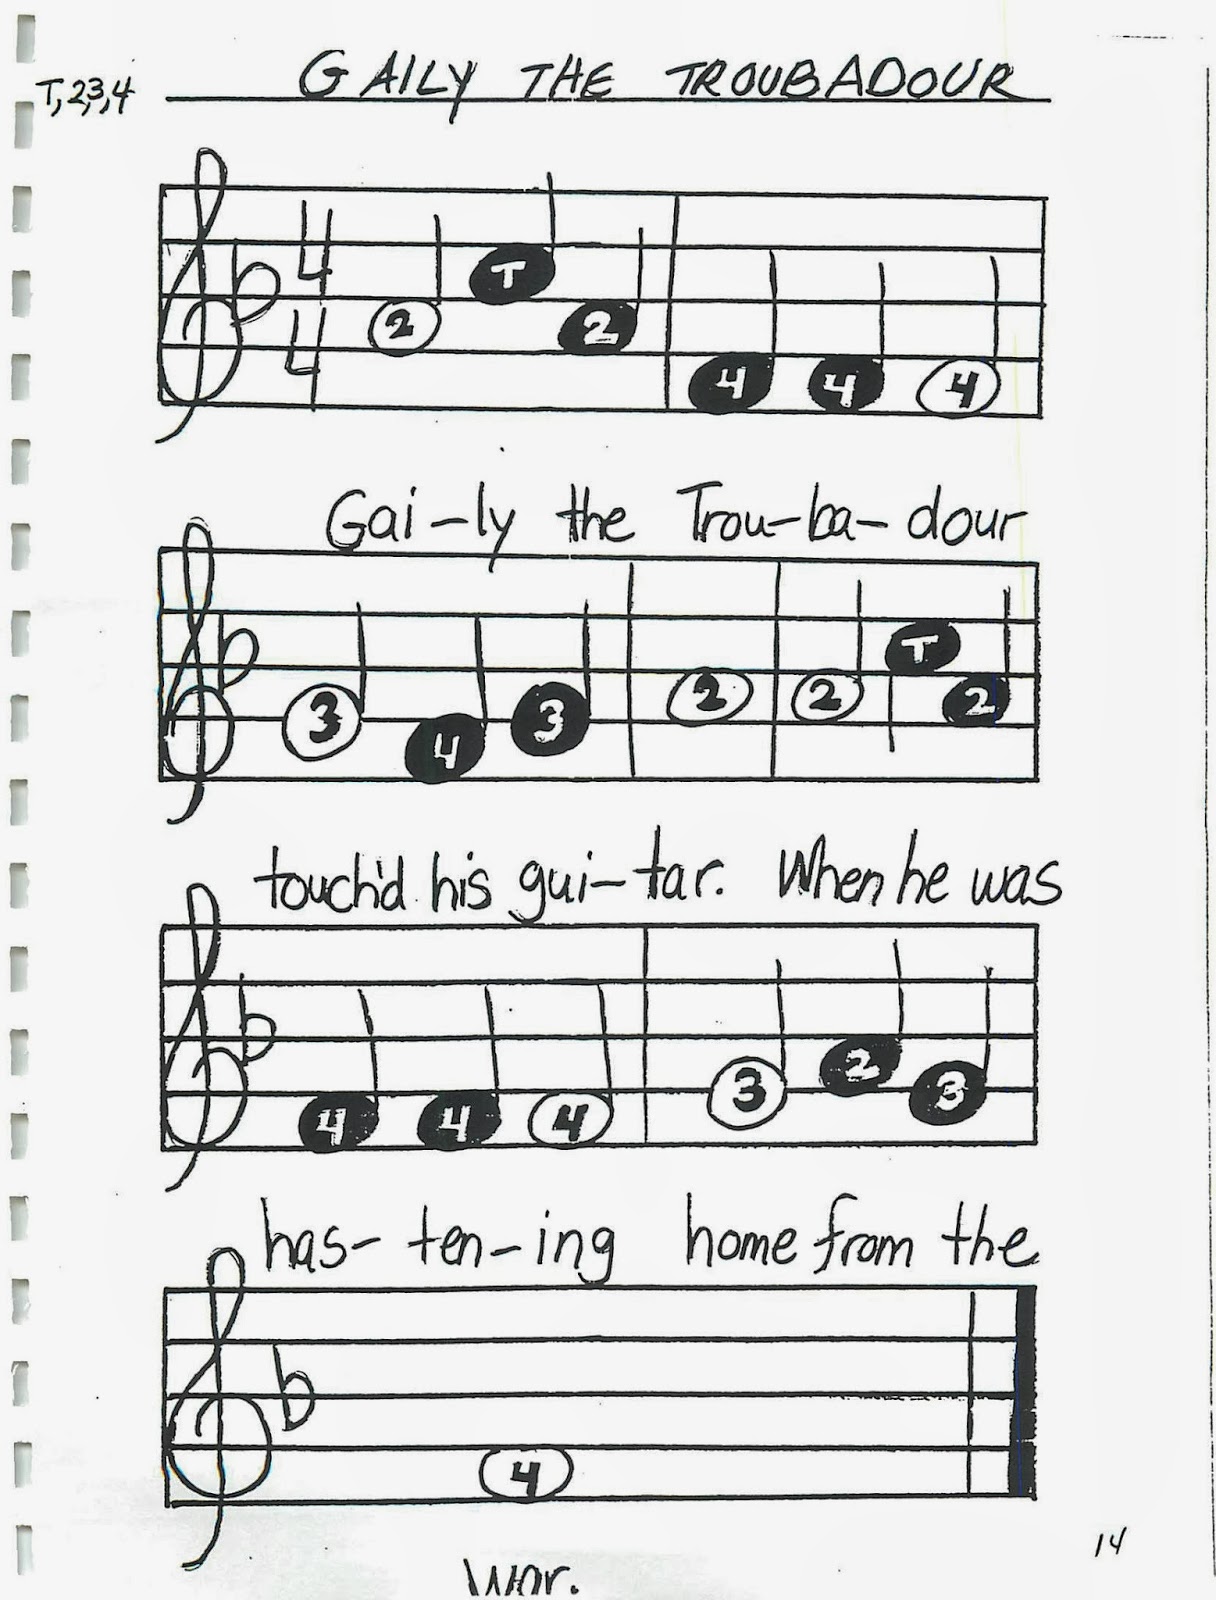 T,2,3,4 GAILY THE TROUBADOUR
4
4
2 T 2 4 4 4
Gai-ly the Trou-ba-dour
3 4 3 2 2 T 2
touch'd his gui-tar. When he was
4 4 4 3 2 3
has-ten-ing home from the
4
War.
14